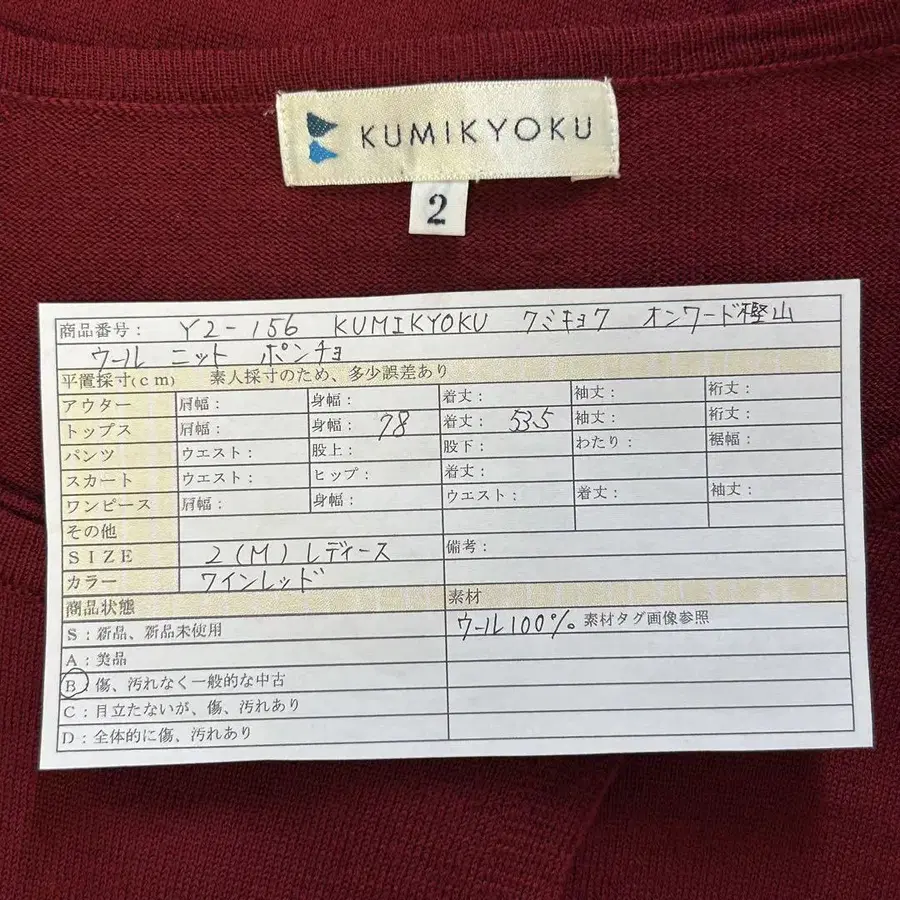 KUMIKYOKU
2
商品番号： Y2-156 KUMIKYOKU クミキョク オンワード樫山
ウール ニット ポンチョ
平置採寸(cm) 素人採寸のため、多少誤差あり
アウター 肩幅： 身幅： 着丈： 袖丈： 裄丈：
トップス 肩幅： 身幅： 78 着丈： 53.5 袖丈： 裄丈：
パンツ ウエスト： 股上： 股下： わたり： 裾幅：
スカート ウエスト： ヒップ： 着丈：
ワンピース 肩幅： 身幅： ウエスト： 着丈： 袖丈：
その他
SIZE 2(M) レディース 備考：
カラー ワインレッド
商品状態 素材
S：新品、新品未使用 ウール100%。素材タグ画像参照
A：美品
B：傷、汚れなく一般的な中古
C：目立たないが、傷、汚れあり
D：全体的に傷、汚れあり